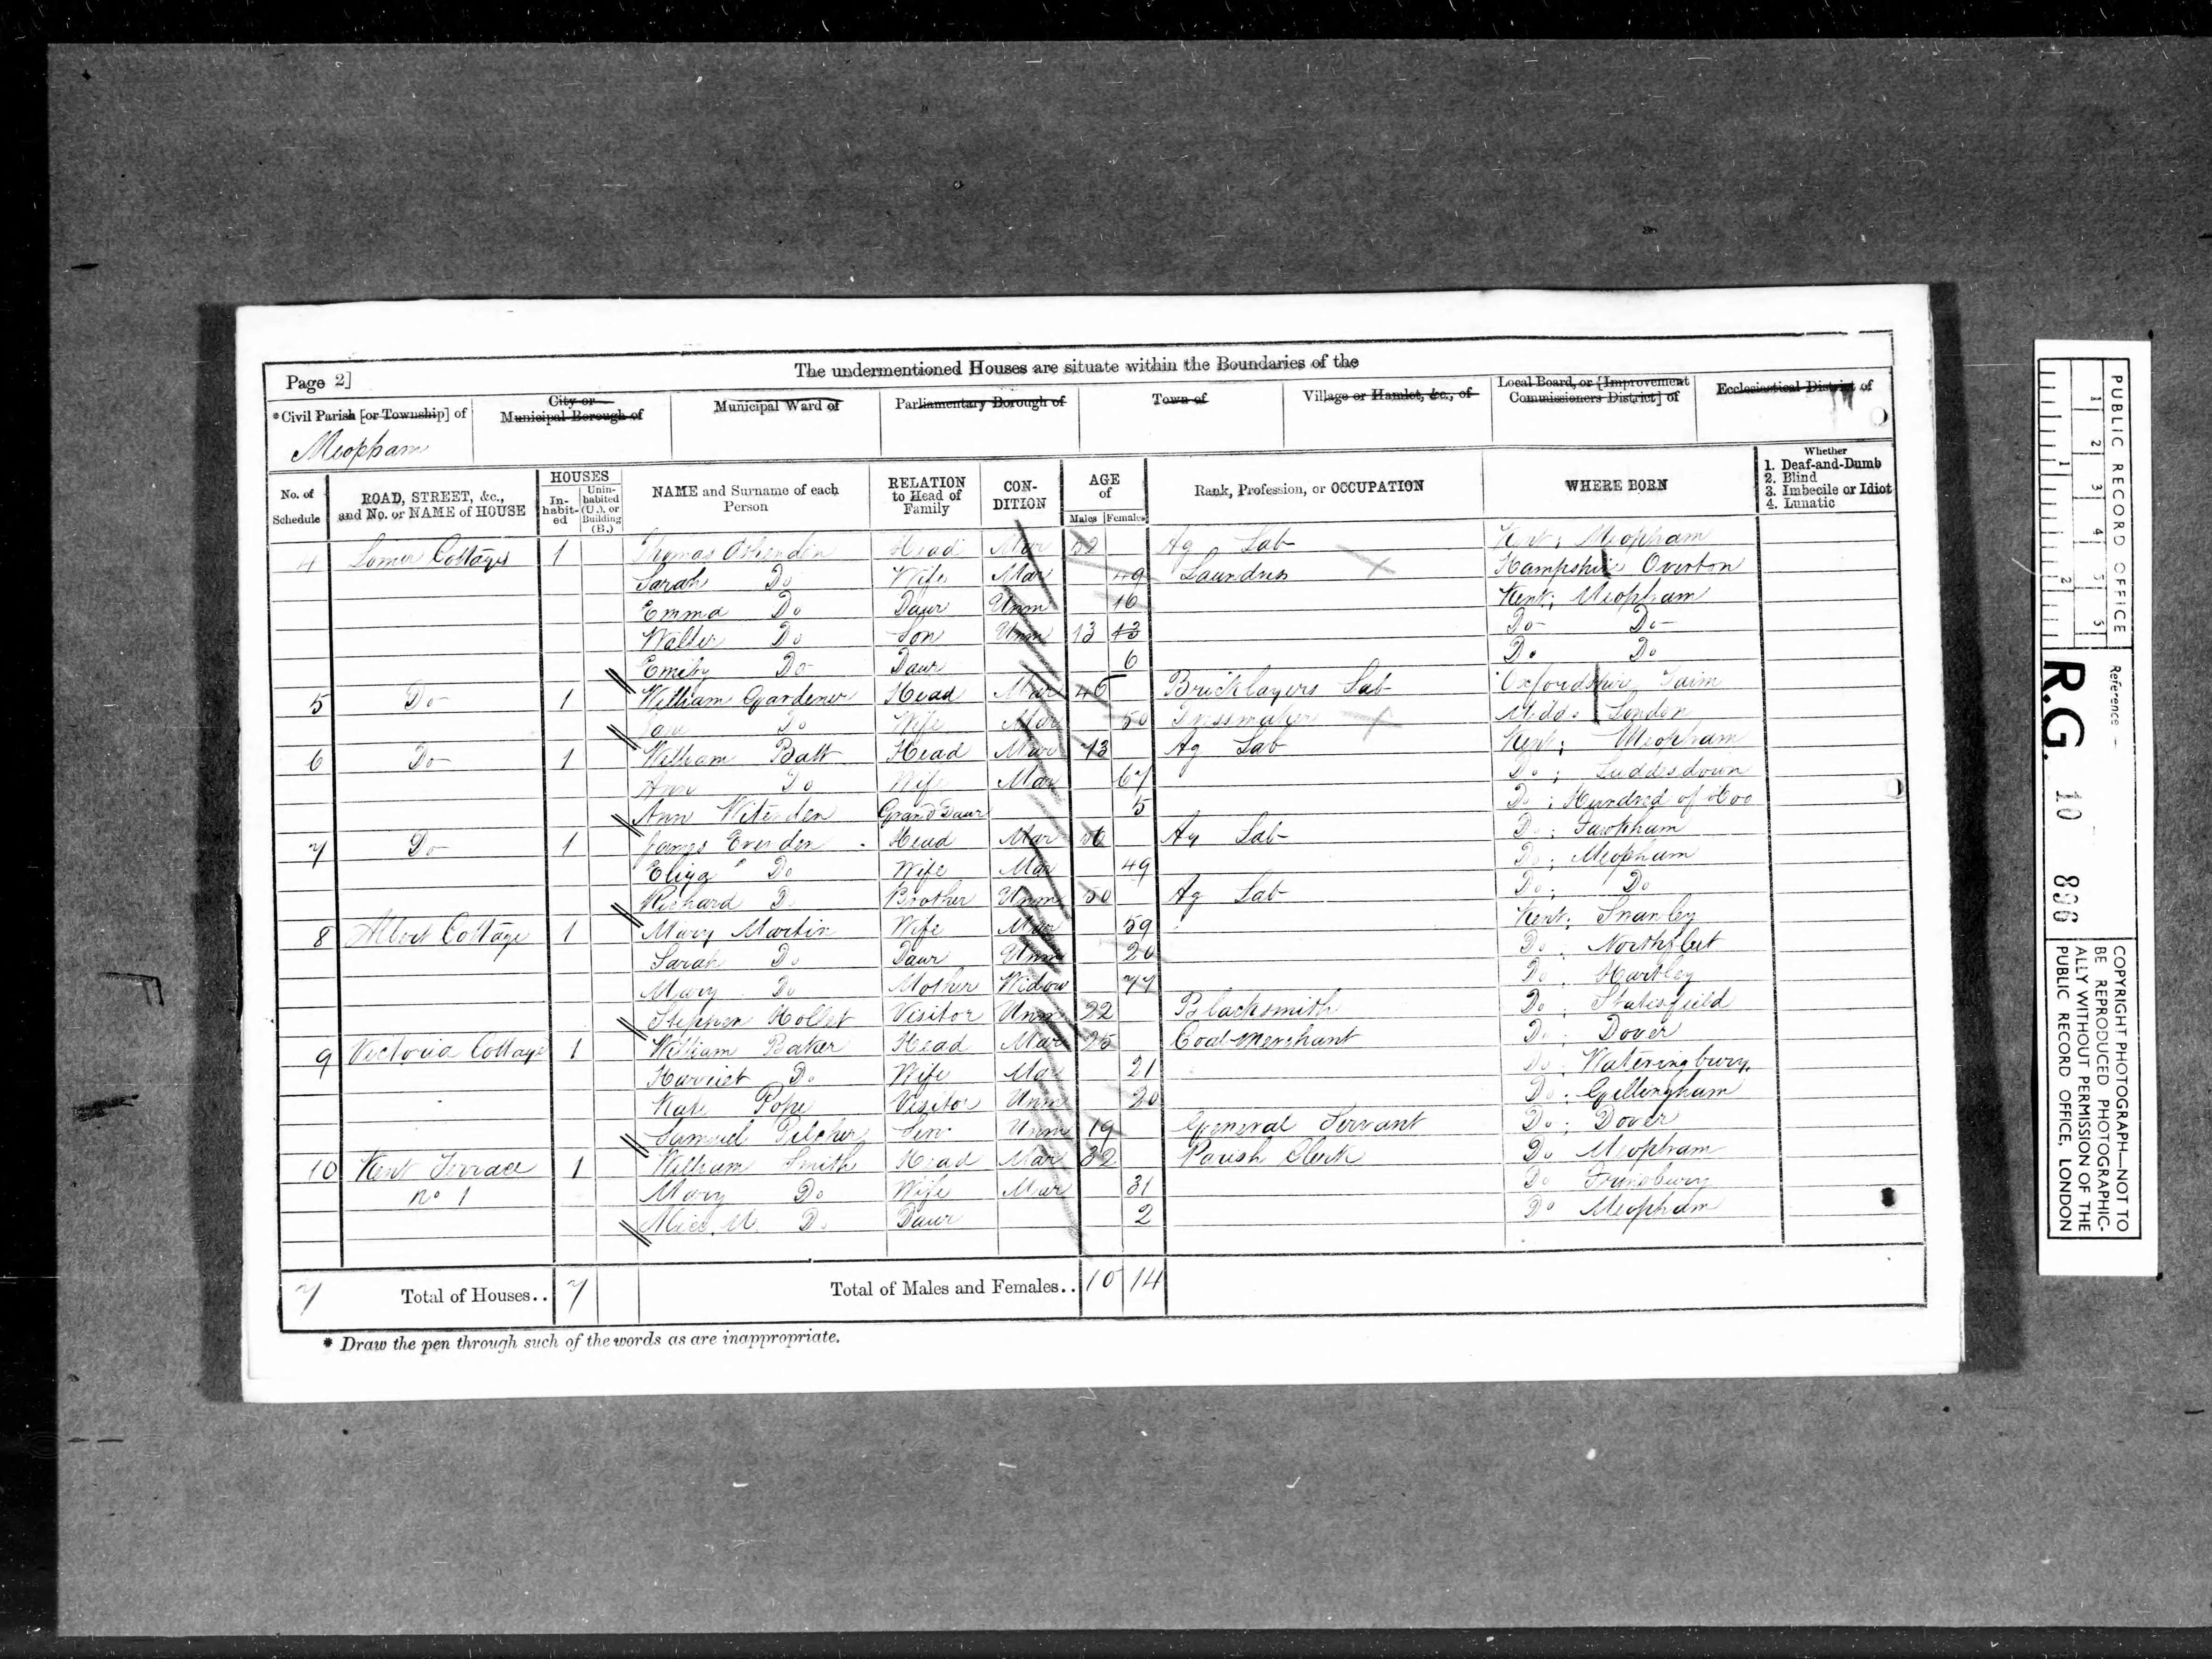 The undermentioned Houses are situate within the Boundaries of the
Page 2]
*Civil Parish [or Township] of
City or Municipal Borough of
Municipal Ward of
Parliamentary Borough of
Town of
Village or Hamlet, &c., of
Local Board, or [Improvement Commissioners District] of
Ecclesiastical District of
Meopham
No. of Schedule
ROAD, STREET, &c., and No. or NAME of HOUSE
HOUSES
In-habit-ed
Unin-habited (U.), or Building (B.)
NAME and Surname of each Person
RELATION to Head of Family
CON-DITION
AGE of
Males
Females
Rank, Profession, or OCCUPATION
WHERE BORN
Whether
1. Deaf-and-Dumb
2. Blind
3. Imbecile or Idiot
4. Lunatic
4 Cottages 1 Thomas Head Mar 52 Ag Lab Kent; Meopham
Sarah Do Wife Mar 49 Laundress Hampshire Overton
Emma Do Daur Unm 16 Kent; Meopham
Walter Do Son Unm 13 13 Do Do
Emily Do Daur 6 Do Do
5 Do 1 William Gardener Head Mar 46 Bricklayers Lab Oxfordshire
Jane Do Wife Mar 50 Dressmaker Midd. London
6 Do 1 William Batt Head Mar 73 Ag Lab Kent; Meopham
Ann Do Wife Mar 67 Do; Luddesdown
Ann Grand Daur 5 Do; Hundred of Hoo
7 Do 1 James Head Mar 56 Ag Lab Do; Fawkham
Eliza Do Wife Mar 49 Do; Meopham
Richard Do Brother Unm 50 Ag Lab Do; Do
8 Albert Cottage 1 Mary Martin Wife Mar 59 Kent;
Sarah Do Daur Unm 20 Do; Northfleet
Mary Do Mother Widow 77 Do; Hartley
Stephen Visitor Unm 22 Blacksmith Do;
9 Victoria Cottage 1 William Baker Head Mar 25 Coal merchant Do; Dover
Harriet Do Wife Mar 21 Do; Wateringbury
Kate Pope Visitor Unm 20 Do; Gillingham
Samuel Pilcher Serv Unm 19 General Servant Do; Dover
10 Kent Terrace 1 William Smith Head Mar 32 Parish Clerk Do Meopham
No 1 Mary Do Wife Mar 31 Do Frinsbury
Alice M. Do Daur 2 Do Meopham
7 Total of Houses.. 7 Total of Males and Females.. 10 14
* Draw the pen through such of the words as are inappropriate.
PUBLIC RECORD OFFICE
1 2 3 4 5
1 2
Reference —
R.G. 10 896
COPYRIGHT PHOTOGRAPH—NOT TO
BE REPRODUCED PHOTOGRAPHIC-
ALLY WITHOUT PERMISSION OF THE
PUBLIC RECORD OFFICE, LONDON